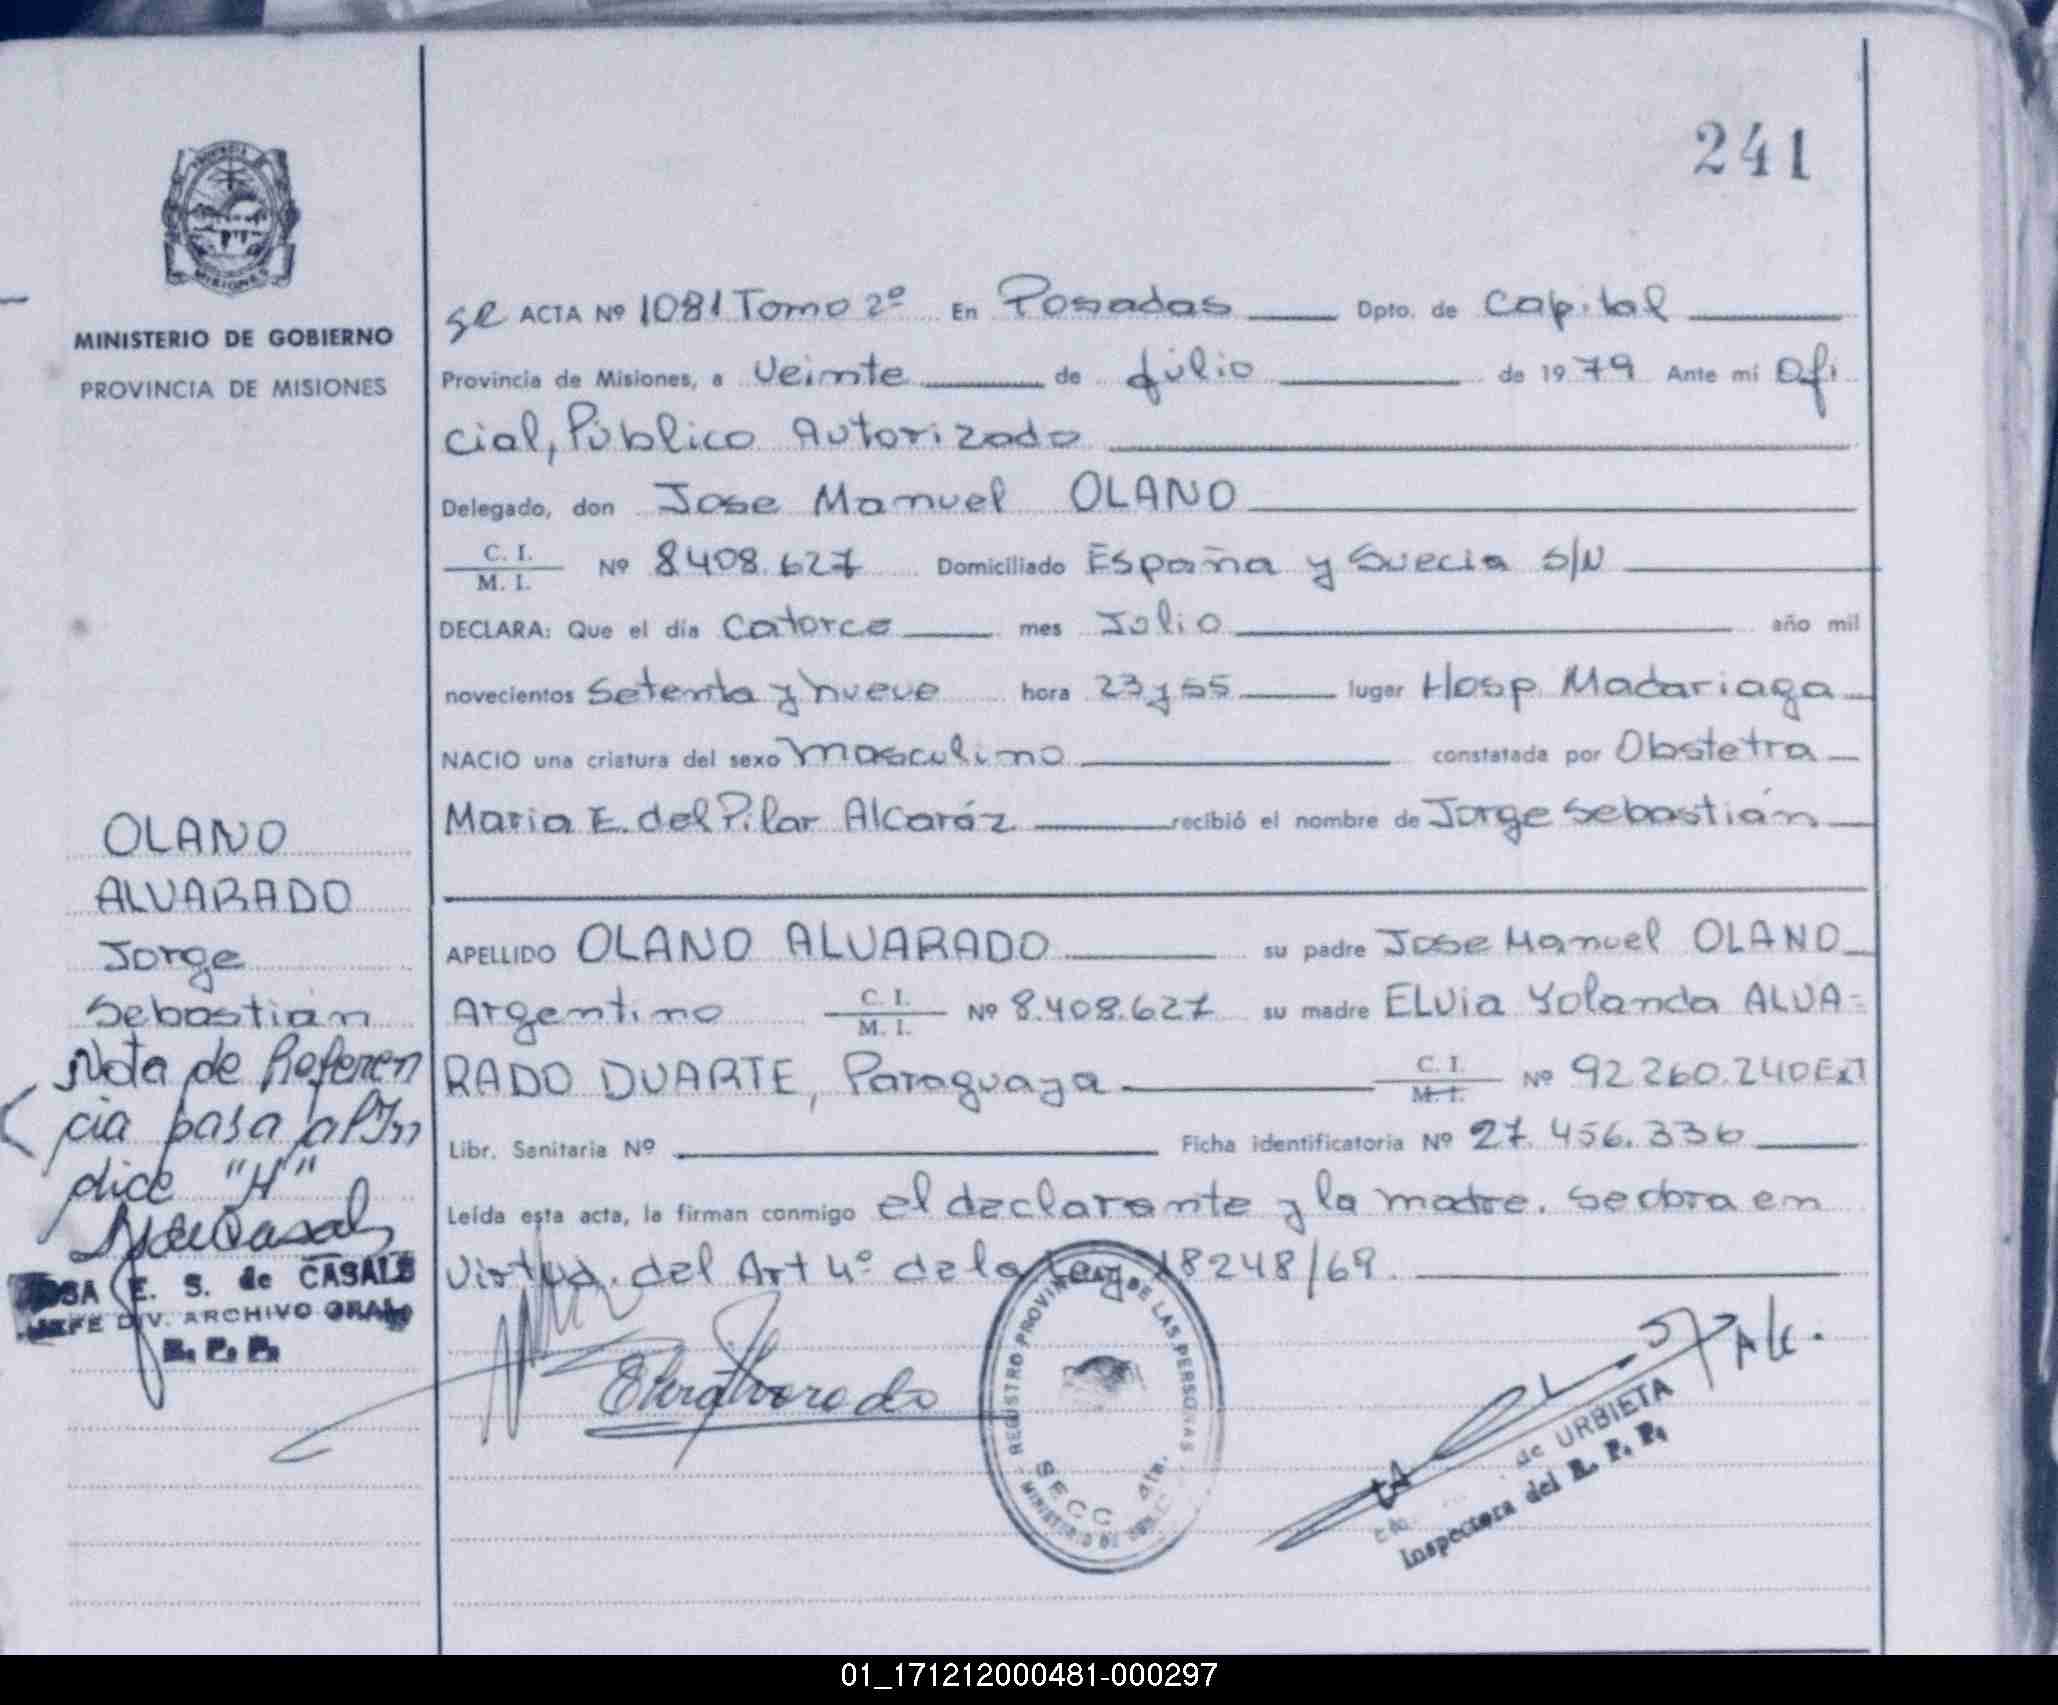 241
PROVINCIA DE
MISIONES
MINISTERIO DE GOBIERNO
PROVINCIA DE MISIONES
ACTA Nº 1081 Tomo 2º En Posadas Dpto. de Capital
Provincia de Misiones, a Veinte de Julio de 1979 Ante mí Ofi
cial, Público Autorizado
Delegado, don Jose Manuel OLANO
C. I.
M. I. Nº 8.408.627 Domiciliado España y Suecia S/N
DECLARA: Que el día Catorce mes Julio año mil
novecientos Setenta y nueve hora 23 y 55 lugar Hosp Madariaga
NACIO una criatura del sexo Masculino constatada por Obstetra
Maria E. del Pilar Alcaráz recibió el nombre de Jorge Sebastián
APELLIDO OLANO ALVARADO su padre Jose Manuel OLANO
Argentino C. I.
M. I. Nº 8.408.627 su madre ELVia Yolanda ALVA=
RADO DUARTE, Paraguaya C. I.
M. I. Nº 92.260.240 ExT
Libr. Sanitaria Nº Ficha identificatoria Nº 27.456.336
Leída esta acta, la firman conmigo el declarante y la madre. Se obra en
Virtud. del Art 4º de la Ley 18248/69.
OLANO
ALVARADO
Jorge
Sebastián
Nota de Referen
cia pasa al Ín
dice "H"
E. S. de CASALS
JEFE DIV. ARCHIVO GRAL
R. P. P.
REGISTRO PROVINCIAL DE LAS PERSONAS
SECC 4ta.
MINISTERIO DE
de URBIETA
Inspectora del R. P. P.
01_171212000481-000297